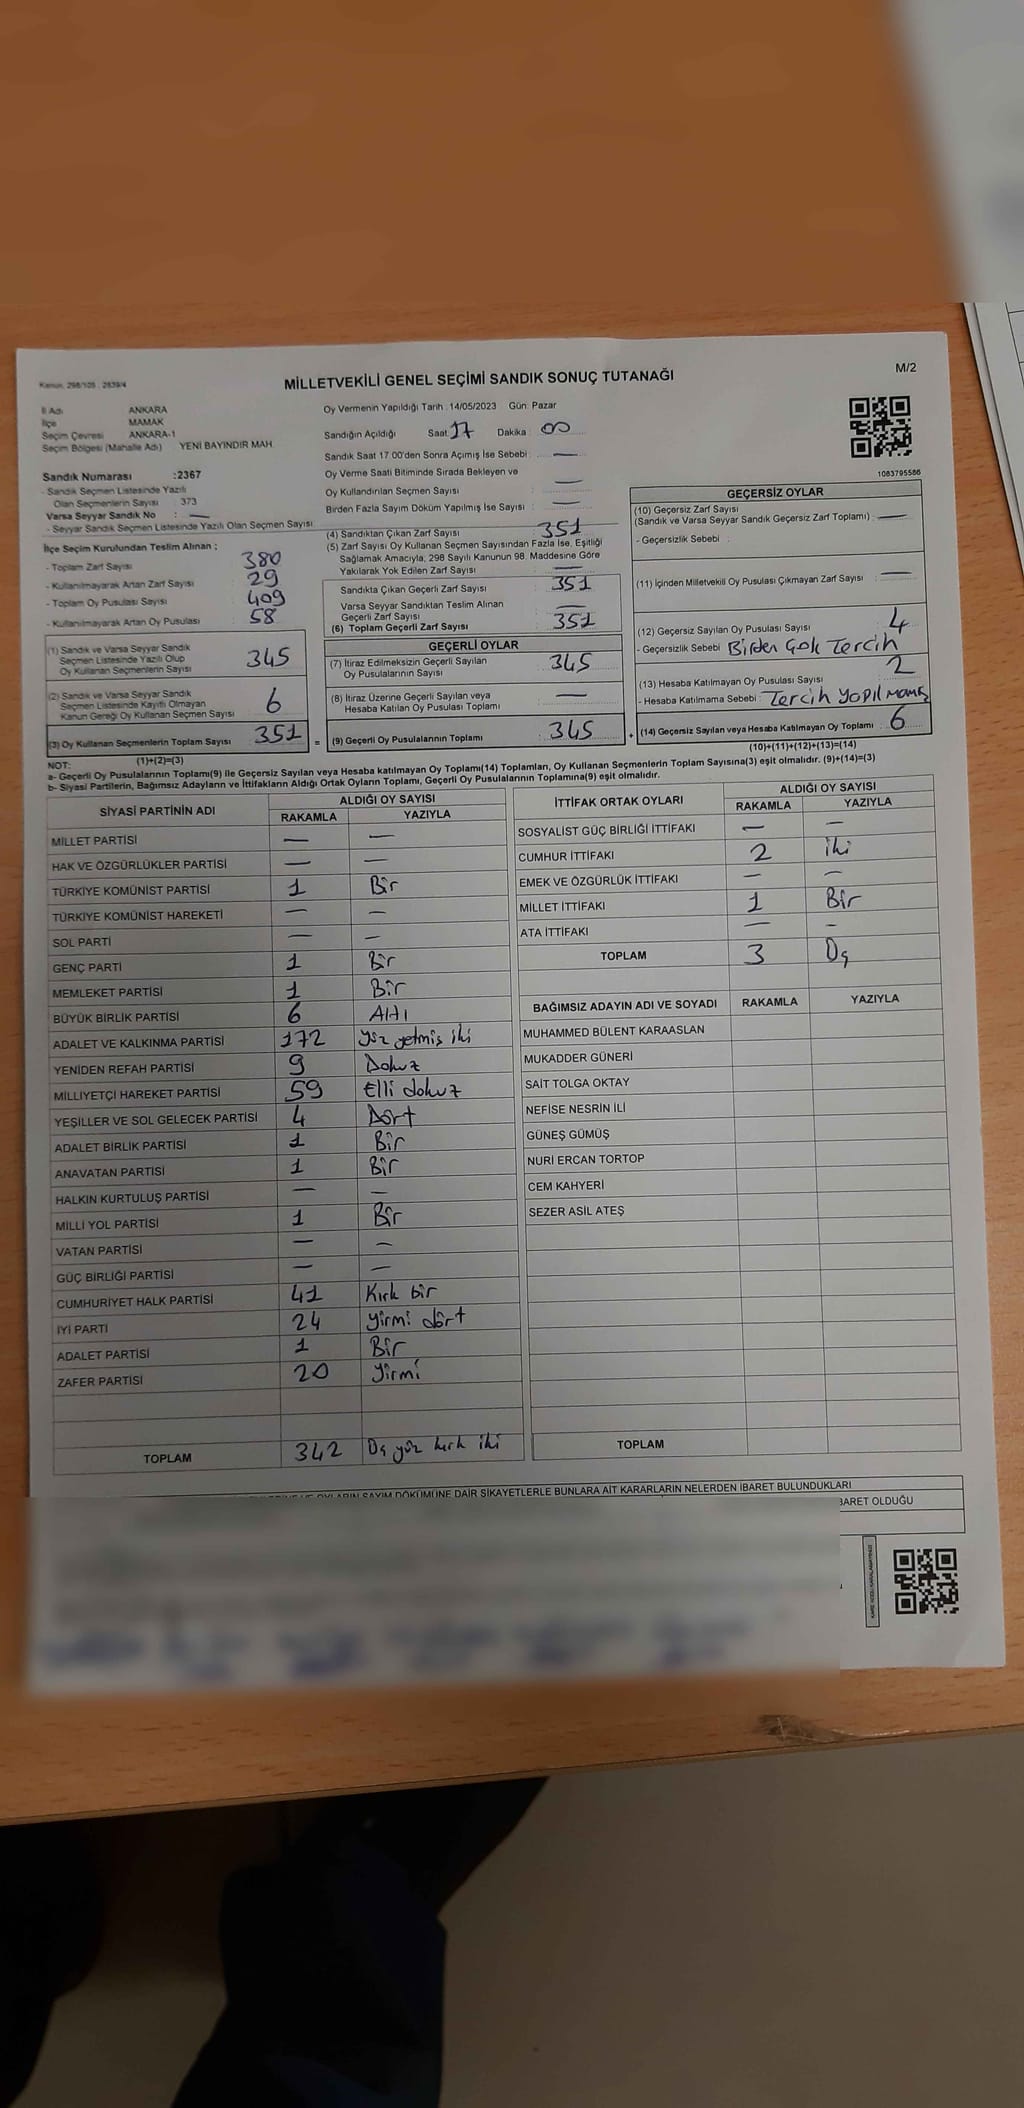 Kanun, 298/105 : 2839/4
MİLLETVEKİLİ GENEL SEÇİMİ SANDIK SONUÇ TUTANAĞI
M/2
İl Adı ANKARA
İlçe MAMAK
Seçim Çevresi ANKARA-1
Seçim Bölgesi (Mahalle Adı) YENİ BAYINDIR MAH.
Sandık Numarası :2367
- Sandık Seçmen Listesinde Yazılı
Olan Seçmenlerin Sayısı : 373
Varsa Seyyar Sandık No : —
- Seyyar Sandık Seçmen Listesinde Yazılı Olan Seçmen Sayısı
İlçe Seçim Kurulundan Teslim Alınan ;
- Toplam Zarf Sayısı : 380
- Kullanılmayarak Artan Zarf Sayısı : 29
- Toplam Oy Pusulası Sayısı : 409
- Kullanılmayarak Artan Oy Pusulası : 58
(1) Sandık ve Varsa Seyyar Sandık
Seçmen Listesinde Yazılı Olup
Oy Kullanan Seçmenlerin Sayısı 345
(2) Sandık ve Varsa Seyyar Sandık
Seçmen Listesinde Kayıtlı Olmayan
Kanun Gereği Oy Kullanan Seçmen Sayısı 6
(3) Oy Kullanan Seçmenlerin Toplam Sayısı 351
(1)+(2)=(3)
Oy Vermenin Yapıldığı Tarih :14/05/2023 Gün: Pazar
Sandığın Açıldığı Saat 17 Dakika 00
Sandık Saat 17.00'den Sonra Açımış İse Sebebi : —
Oy Verme Saati Bitiminde Sırada Bekleyen ve
Oy Kullandırılan Seçmen Sayısı : —
Birden Fazla Sayım Döküm Yapılmış İse Sayısı : —
(4) Sandıktan Çıkan Zarf Sayısı : 351
(5) Zarf Sayısı Oy Kullanan Seçmen Sayısından Fazla İse, Eşitliği
Sağlamak Amacıyla, 298 Sayılı Kanunun 98. Maddesine Göre
Yakılarak Yok Edilen Zarf Sayısı : —
Sandıkta Çıkan Geçerli Zarf Sayısı : 351
Varsa Seyyar Sandıktan Teslim Alınan
Geçerli Zarf Sayısı : —
(6) Toplam Geçerli Zarf Sayısı : 351
GEÇERLİ OYLAR
(7) İtiraz Edilmeksizin Geçerli Sayılan
Oy Pusulalarının Sayısı : 345
(8) İtiraz Üzerine Geçerli Sayılan veya
Hesaba Katılan Oy Pusulası Toplamı : —
= (9) Geçerli Oy Pusulalarının Toplamı : 345
1083795586
GEÇERSİZ OYLAR
(10) Geçersiz Zarf Sayısı
(Sandık ve Varsa Seyyar Sandık Geçersiz Zarf Toplamı) : —
- Geçersizlik Sebebi :
(11) İçinden Milletvekili Oy Pusulası Çıkmayan Zarf Sayısı : —
(12) Geçersiz Sayılan Oy Pusulası Sayısı : 4
- Geçersizlik Sebebi : Birden Çok Tercih
(13) Hesaba Katılmayan Oy Pusulası Sayısı : 2
- Hesaba Katılmama Sebebi : Tercih yapılmamış
+ (14) Geçersiz Sayılan veya Hesaba Katılmayan Oy Toplamı : 6
(10)+(11)+(12)+(13)=(14)
NOT:
a- Geçerli Oy Pusulalarının Toplamı(9) ile Geçersiz Sayılan veya Hesaba katılmayan Oy Toplamı(14) Toplamları, Oy Kullanan Seçmenlerin Toplam Sayısına(3) eşit olmalıdır. (9)+(14)=(3)
b- Siyasi Partilerin, Bağımsız Adayların ve İttifakların Aldığı Ortak Oyların Toplamı, Geçerli Oy Pusulalarının Toplamına(9) eşit olmalıdır.
SİYASİ PARTİNİN ADI ALDIĞI OY SAYISI
RAKAMLA YAZIYLA
MİLLET PARTİSİ — —
HAK VE ÖZGÜRLÜKLER PARTİSİ — —
TÜRKİYE KOMÜNİST PARTİSİ 1 Bir
TÜRKİYE KOMÜNİST HAREKETİ — —
SOL PARTİ — —
GENÇ PARTİ 1 Bir
MEMLEKET PARTİSİ 1 Bir
BÜYÜK BİRLİK PARTİSİ 6 Altı
ADALET VE KALKINMA PARTİSİ 172 Yüz yetmiş iki
YENİDEN REFAH PARTİSİ 9 Dokuz
MİLLİYETÇİ HAREKET PARTİSİ 59 Elli dokuz
YEŞİLLER VE SOL GELECEK PARTİSİ 4 Dört
ADALET BİRLİK PARTİSİ 1 Bir
ANAVATAN PARTİSİ 1 Bir
HALKIN KURTULUŞ PARTİSİ — —
MİLLİ YOL PARTİSİ 1 Bir
VATAN PARTİSİ — —
GÜÇ BİRLİĞİ PARTİSİ — —
CUMHURİYET HALK PARTİSİ 41 Kırk bir
İYİ PARTİ 24 Yirmi dört
ADALET PARTİSİ 1 Bir
ZAFER PARTİSİ 20 Yirmi
TOPLAM 342 Üç yüz kırk iki
İTTİFAK ORTAK OYLARI ALDIĞI OY SAYISI
RAKAMLA YAZIYLA
SOSYALİST GÜÇ BİRLİĞİ İTTİFAKI — —
CUMHUR İTTİFAKI 2 İki
EMEK VE ÖZGÜRLÜK İTTİFAKI — —
MİLLET İTTİFAKI 1 Bir
ATA İTTİFAKI — —
TOPLAM 3 Üç
BAĞIMSIZ ADAYIN ADI VE SOYADI RAKAMLA YAZIYLA
MUHAMMED BÜLENT KARAASLAN
MUKADDER GÜNERİ
SAİT TOLGA OKTAY
NEFİSE NESRİN İLİ
GÜNEŞ GÜMÜŞ
NURİ ERCAN TORTOP
CEM KAHYERİ
SEZER ASİL ATEŞ
TOPLAM
VE OYLARIN SAYIM DÖKÜMÜNE DAİR ŞİKAYETLERLE BUNLARA AİT KARARLARIN NELERDEN İBARET BULUNDUKLARI
BARET OLDUĞU